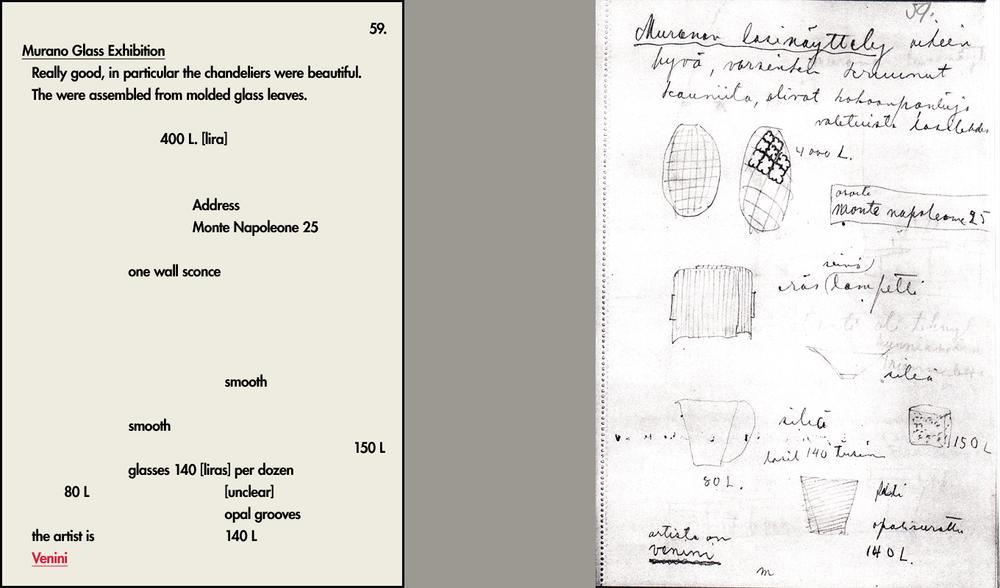 59.
Murano Glass Exhibition
Really good, in particular the chandeliers were beautiful.
The were assembled from molded glass leaves.
400 L. [lira]
Address
Monte Napoleone 25
one wall sconce
smooth
smooth
150 L
glasses 140 [liras] per dozen
80 L [unclear]
opal grooves
the artist is 140 L
Venini
59.
Muranon lasinäyttely oikein
hyvä, varsinkin kruunut
kauniita, olivat kokoonpantuja
valetuista lasilehdis
4000 L.
osoite
Monte napoleone 25
seinä
eräs lampetti
sileä
sileä
150 L
lasit 140 tusin
80 L.
140 L.
artisti on
venini
m